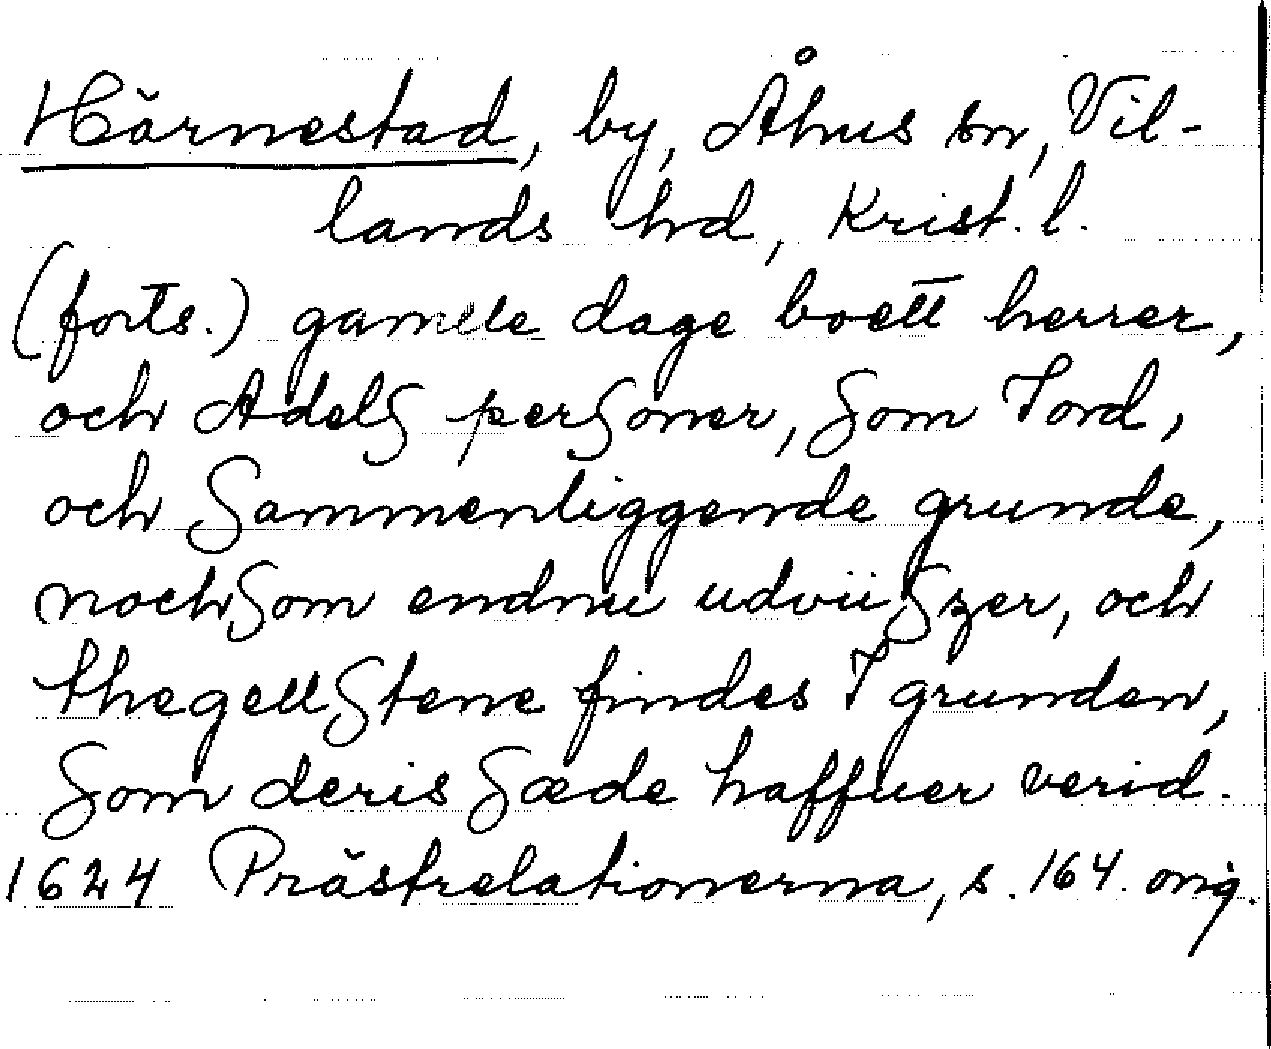 Härnestad, by, Åhus sn, Vil-
lands hd, Krist. l.
(forts.) gamelle dage boett herrer,
och Adelß perßoner, ßom Iord,
och ßammenliggende grunde,
nochßom endnu udviißzer, och
thegellßtene findes I grunden,
ßom deris ßæde haffuer verid.
1624 Prästrelationerna, s. 164. orig.